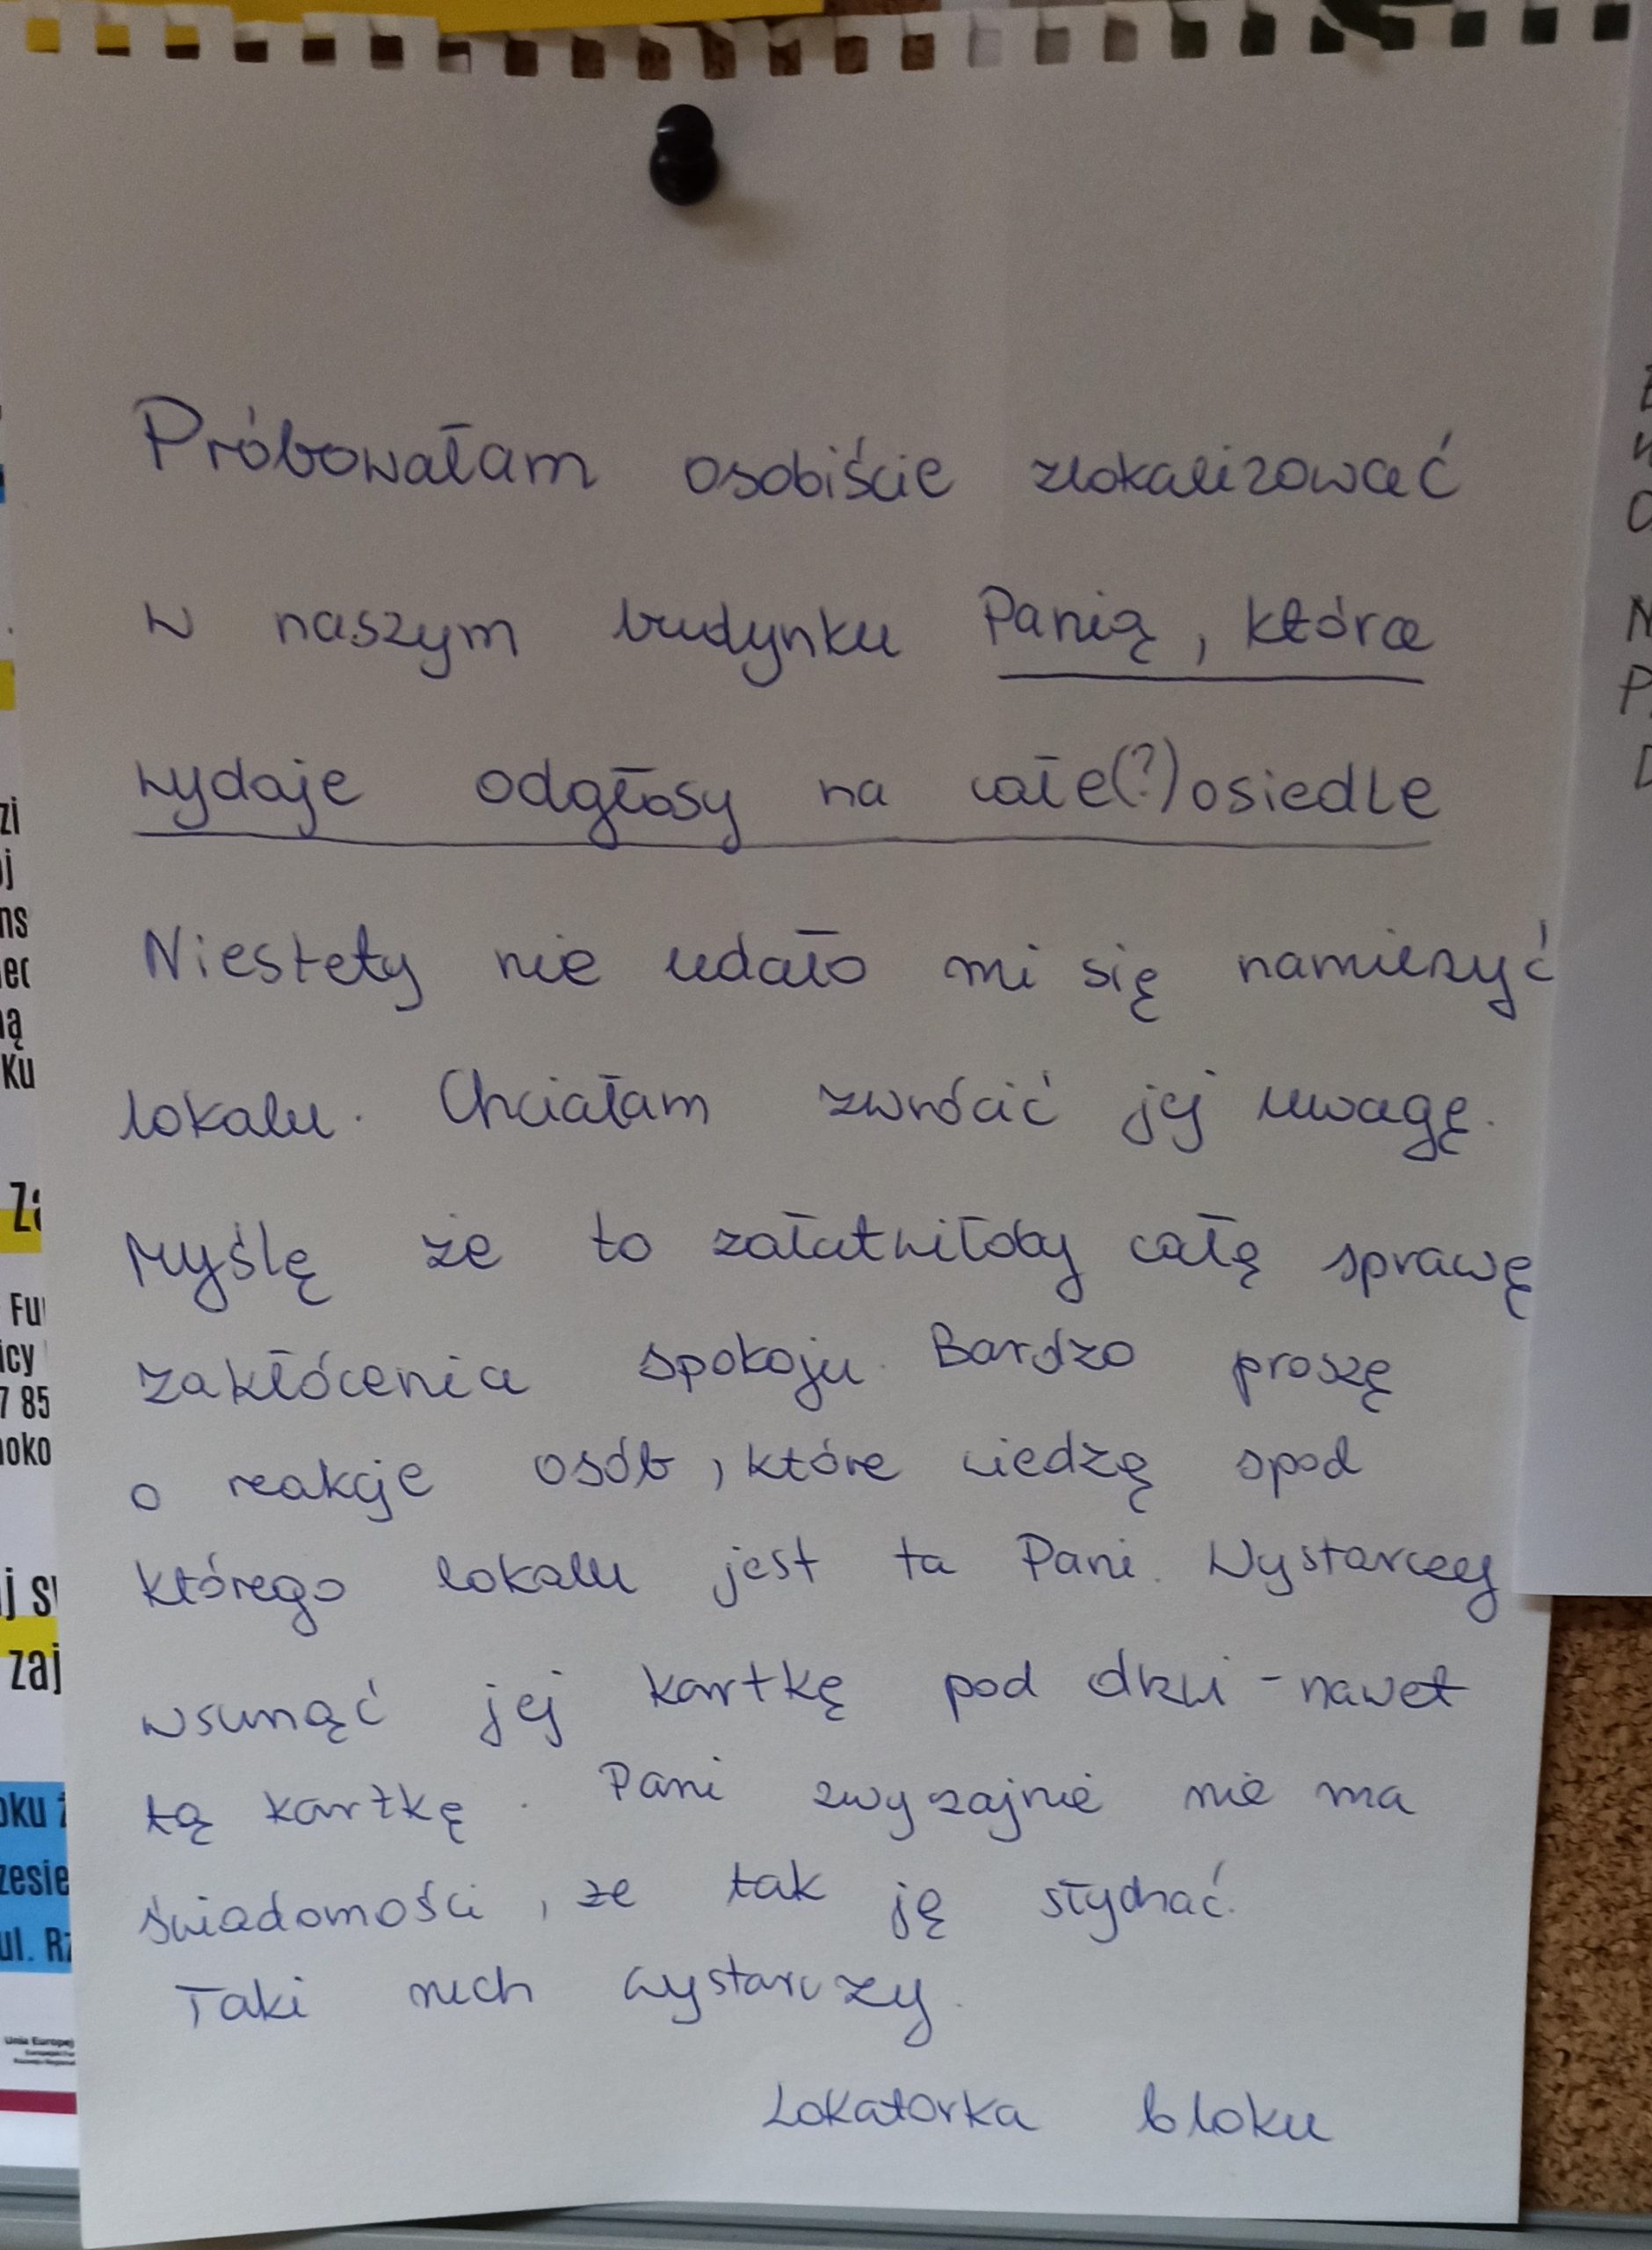 Próbowałam osobiście zlokalizować
w naszym budynku Panią, która
wydaje odgłosy na całe(?) osiedle
Niestety nie udało mi się namierzyć
lokalu. Chciałam zwrócić jej uwagę.
Myślę że to załatwiłoby całą sprawę
zakłócenia spokoju. Bardzo proszę
o reakcje osób, które wiedzą spod
którego lokalu jest ta Pani. Wystarczy
wsunąć jej kartkę pod drzwi - nawet
tą kartkę. Pani zwyczajnie nie ma
świadomości, że tak ją słychać.
Taki niech wystarczy.
Lokatorka bloku
Ku
Fu
icy
7 85
zaj
oku
zesie
ul. Rz
Unia Europej